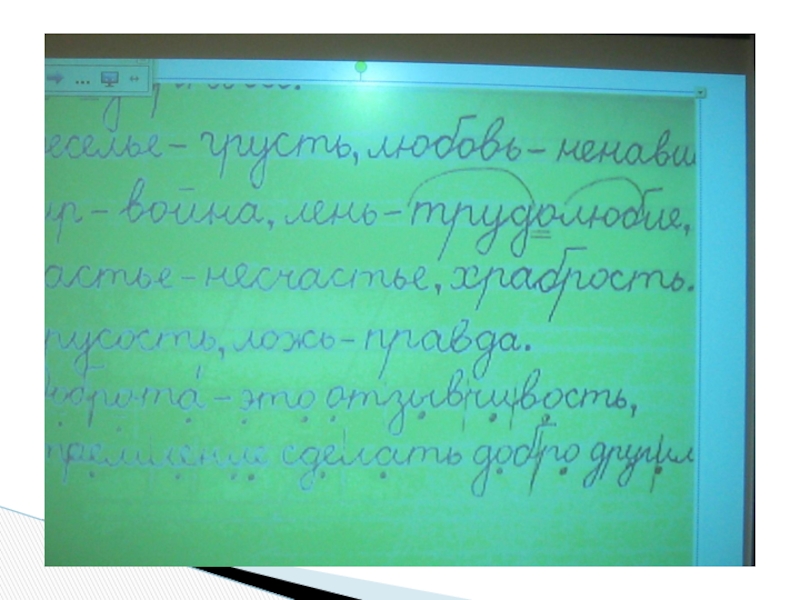 еселье - грусть, любовь - ненави
ир - война, лень - трудолюбие,
астье - несчастье, храбрость -
русость, ложь - правда.
оброта - это отзывчивость,
тремление сделать добро другим